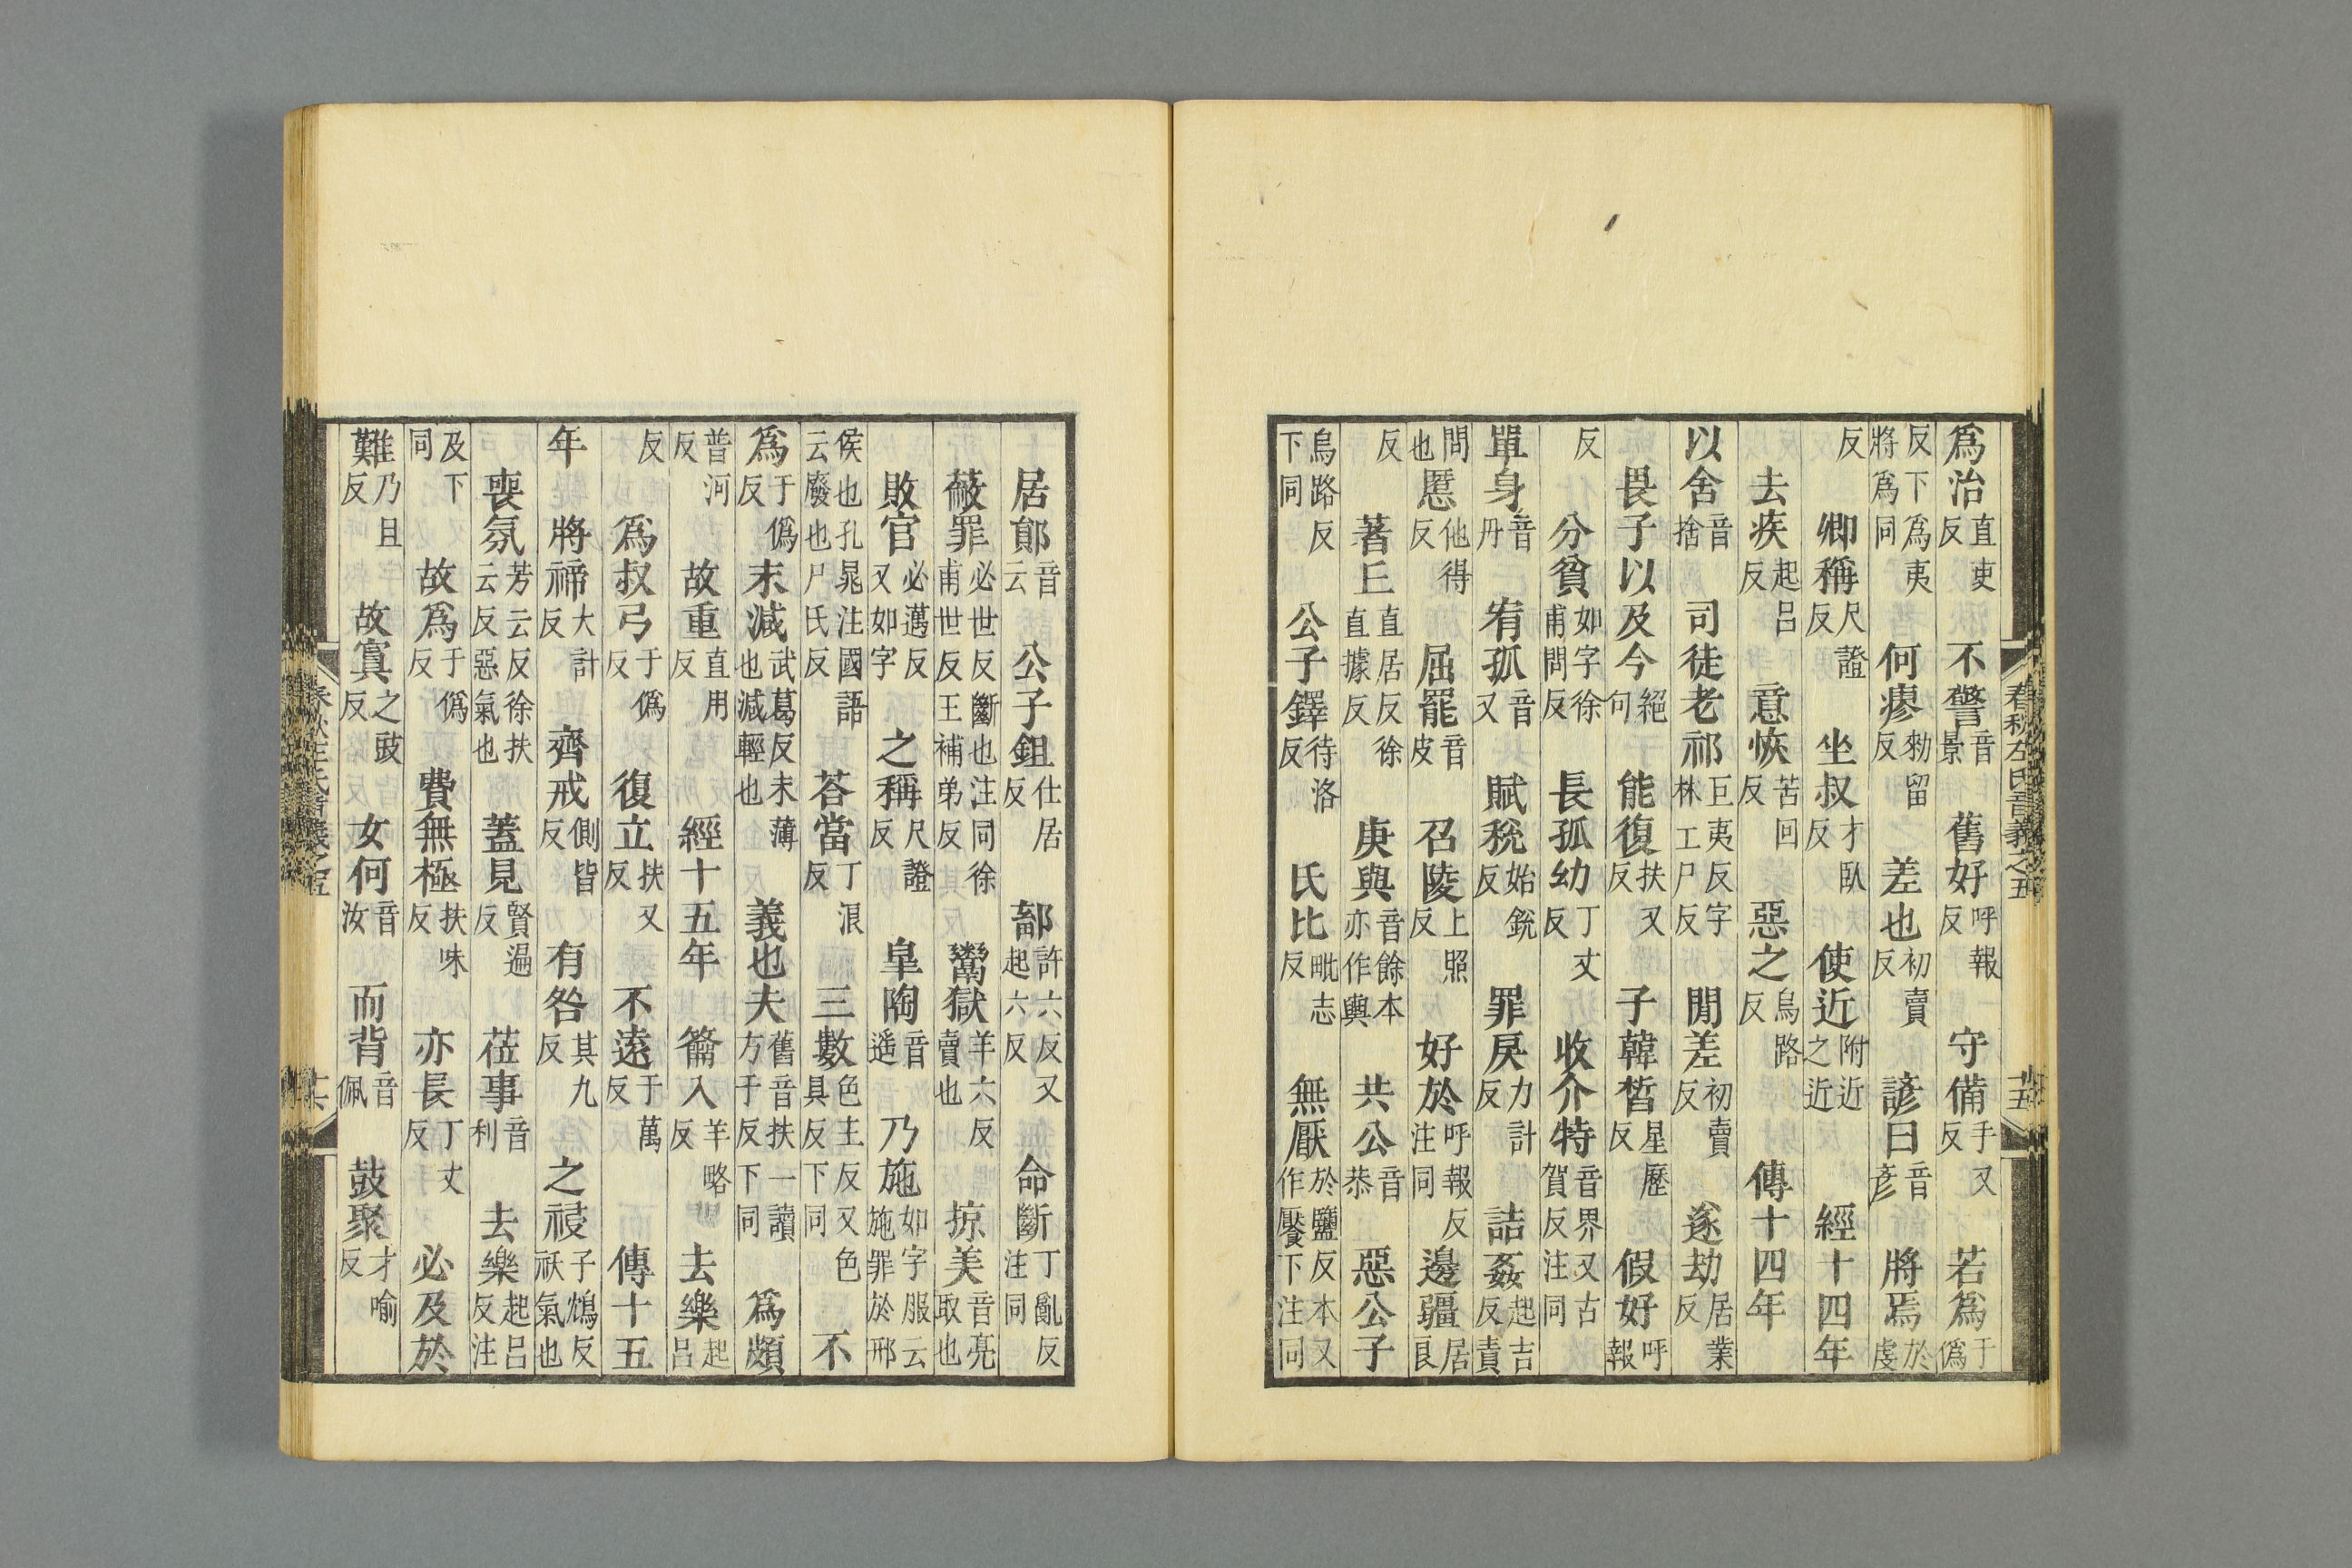 爲治直吏反不警音景舊好呼報反守備手又反若爲于僞
反下爲夷將爲同何瘳勑留反差也初賣反諺曰音彥將焉於虔
反卿稱尺證反坐叔才臥反使近附近之近經十四年
去疾起呂反意恢苦回反惡之烏路反傳十四年
以舍音捨司徒老祁巨夷反字林工尸反閒差初賣反遂劫居業反
畏子以及今絕句能復扶又反子韓晳星歷反假好呼報
反分貧如字徐甫問反長孤幼丁丈反收介特音界又古賀反注同
單身音丹宥孤音又賦稅始銳反罪戾力計反詰姦起吉反責
問也慝他得反屈罷音皮召陵上照反好於呼報反注同邊疆居良
反著丘直居反徐直據反庚與音餘本亦作輿共公音恭惡公子
烏路反下同公子鐸待洛反氏比毗志反無厭於鹽反本又作饜下注同
春秋左氏音義之五 十五
居鄖音云公子鉏仕居反鄐許六反又起六反命斷丁亂反注同
蔽罪必世反斷也注同徐甫世反王補弟反鬻獄羊六反賣也掠美音亮取也
敗官必邁反又如字之稱尺證反皐陶音遙乃施如字服云施罪於邢
侯也孔晁注國語云廢也尸氏反荅當丁浪反三數色主反又色具反下同不
爲于僞反末減武葛反末薄也減輕也義也夫舊音扶一讀方于反下同爲頗
普河反故重直用反經十五年籥入羊略反去樂起呂
反爲叔弓于僞反復立扶又反不遠于萬反傳十五
年將禘大計反齊戒側皆反有咎其九反之祲子鴆反祅氣也
喪氛芳云反徐扶云反惡氣也蓋見賢遍反莅事音利去樂起呂反注
及下同故爲于僞反費無極扶味反亦長丁丈反必及於
難乃且反故寘之豉反女何音汝而背音佩鼓聚才喻反
春秋左氏音義之五 十六